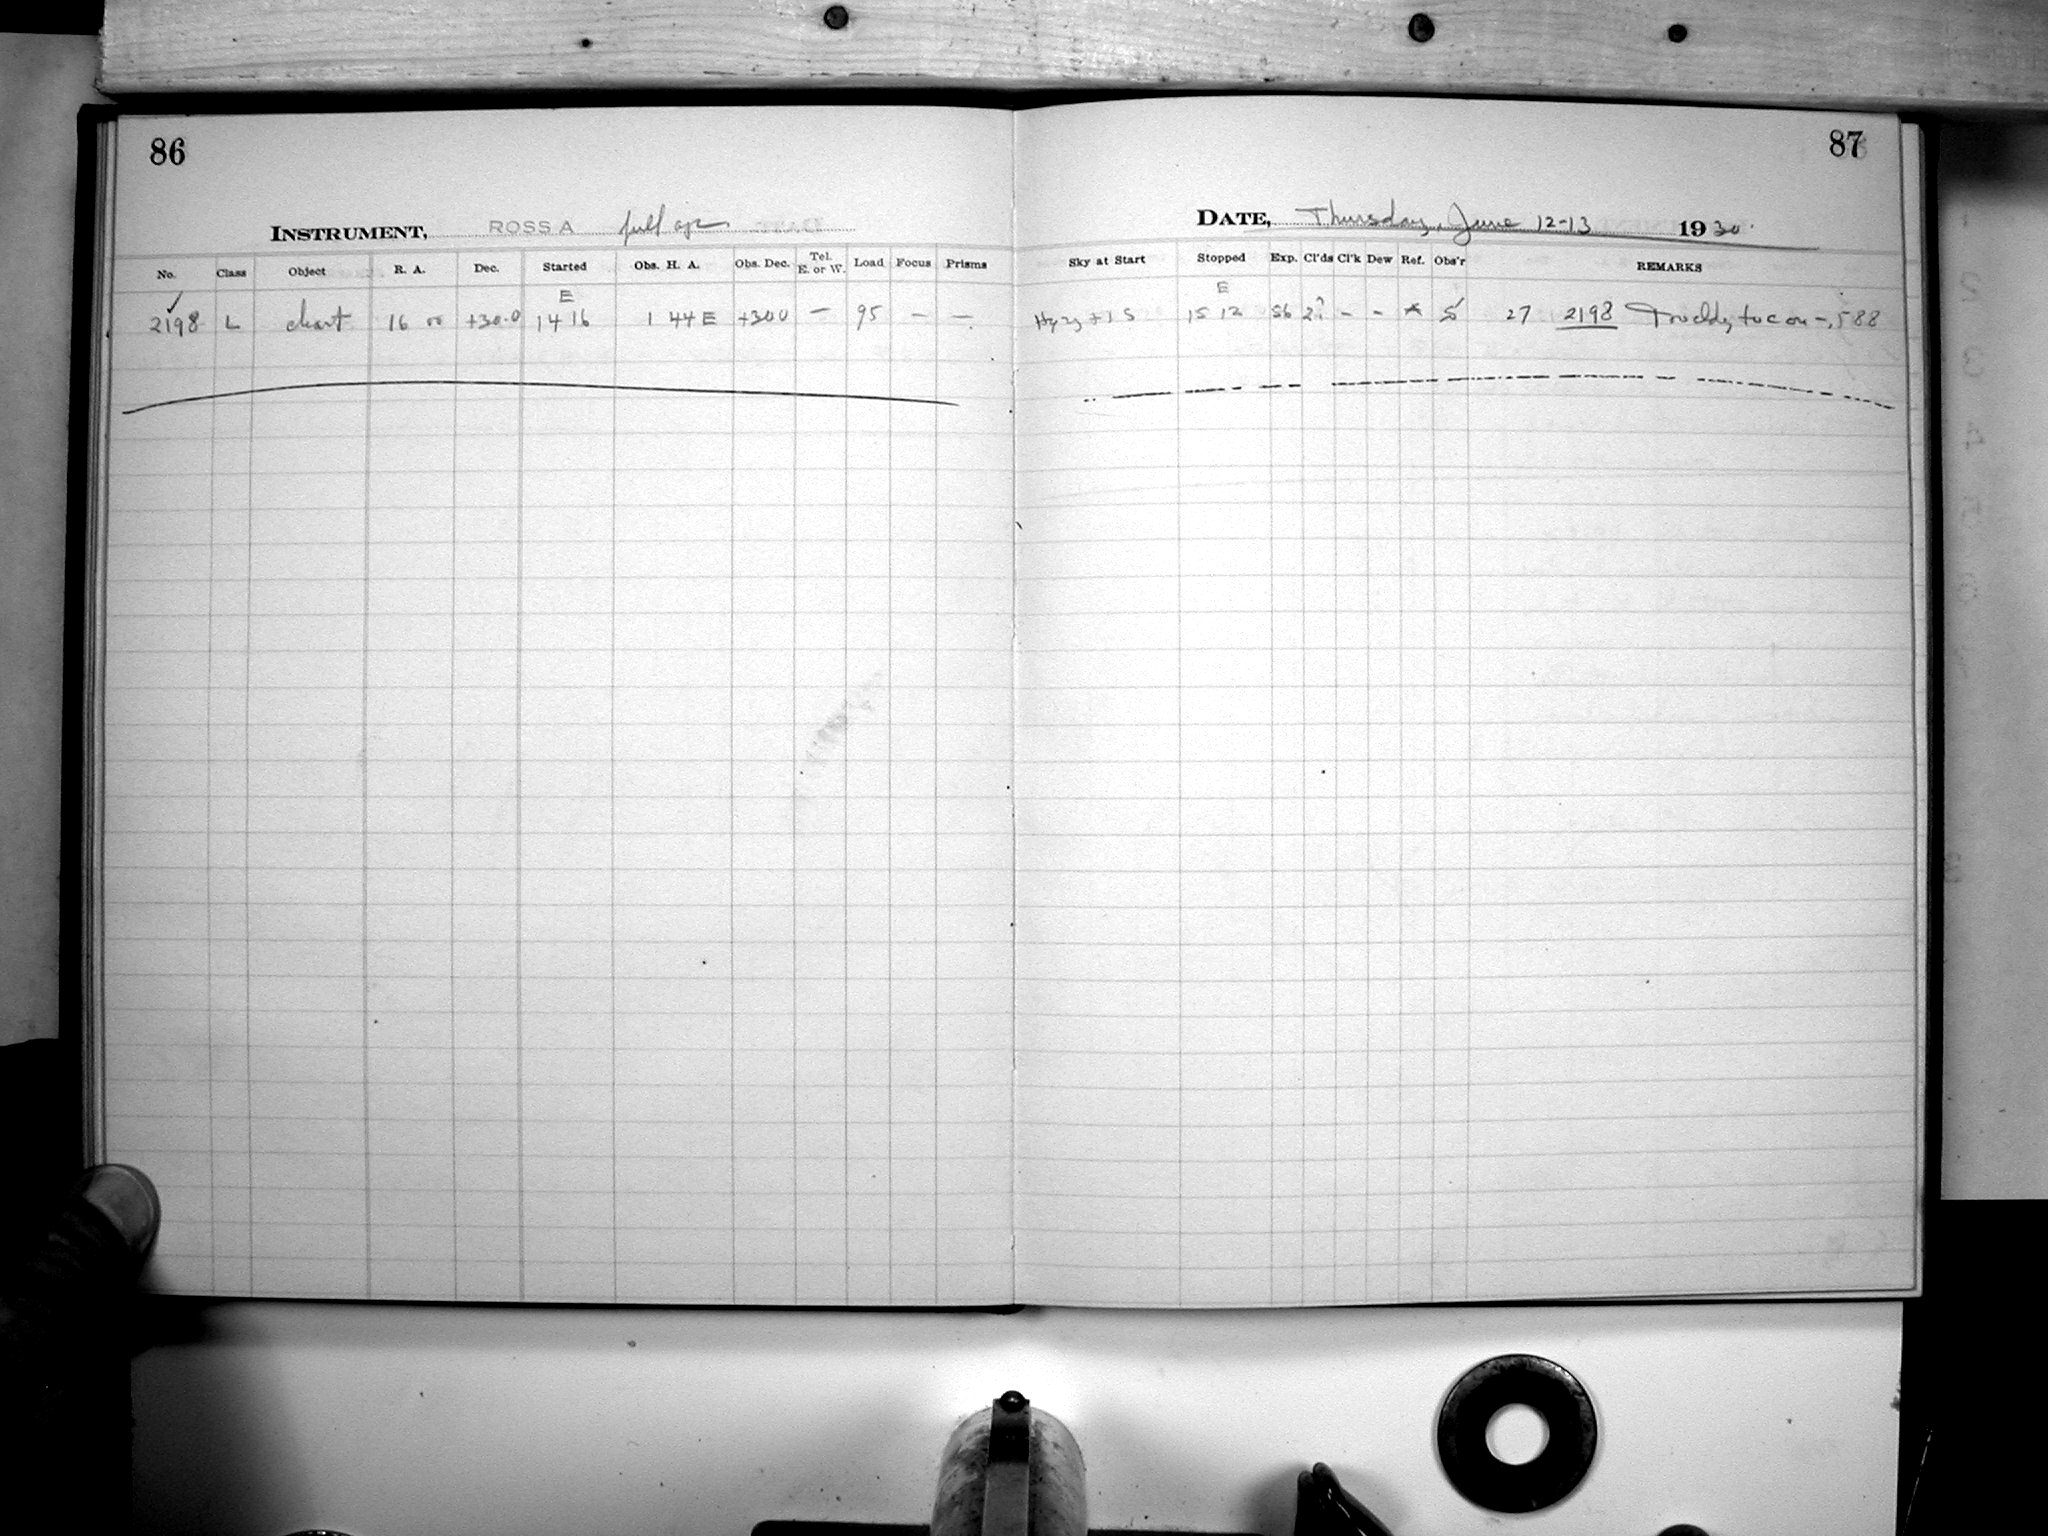 86
INSTRUMENT, ROSS A full ap.
No. Class Object R. A. Dec. Started Obs. H. A. Obs. Dec. Tel. E. or W. Load Focus Prisms
E
2198 L chart 16 00 +30.0 14 16 1 44 E +300 — 95 — —
87
DATE, Thursday, June 12-13 1930.
Sky at Start Stopped Exp. Cl'ds Cl'k Dew Ref. Obs'r REMARKS
E
15 12 56 2? - - 27 2198 588